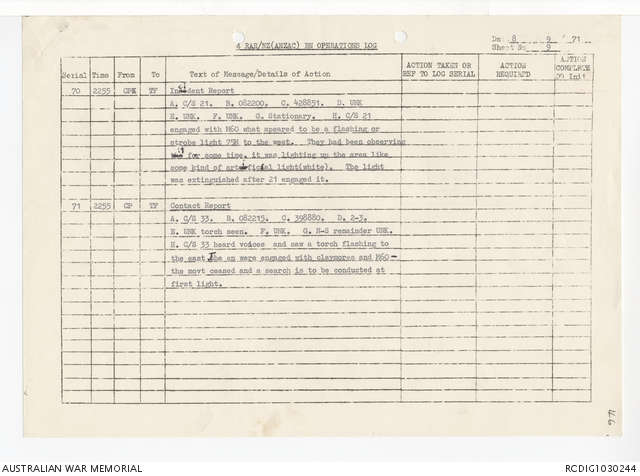 4 RAR/NZ(ANZAC) BN OPERATIONS LOG
Da 8 9 '71
Sheet No 9
Serial Time From To Text of Message/Details of Action ACTION TAKEN OR REF TO LOG SERIAL ACTION REQUIRED ACTION COMPLETE
Init
70 2255 TF Incident Report
A. C/S 21. B. 082200. C. 428851. D. UNK
E. UNK. F. UNK. G. Stationary. H. C/S 21
engaged with M60 what apeared to be a flashing or
strobe light 75M to the west. They had been observing
for some time, it was lighting up the area like
some kind of artificial light(white). The light
was extinguished after 21 engaged it.
71 2255 CP TF Contact Report
A. C/S 33. B. 082215. C. 398880. D. 2-3.
E. UNK torch seen. F. UNK. G. N-S remainder UNK.
H. C/S 33 heard voices and saw a torch flashing to
the east The en were engaged with claymores and M60 -
the movt ceased and a search is to be conducted at
first light.
AUSTRALIAN WAR MEMORIAL
RCDIG1030244